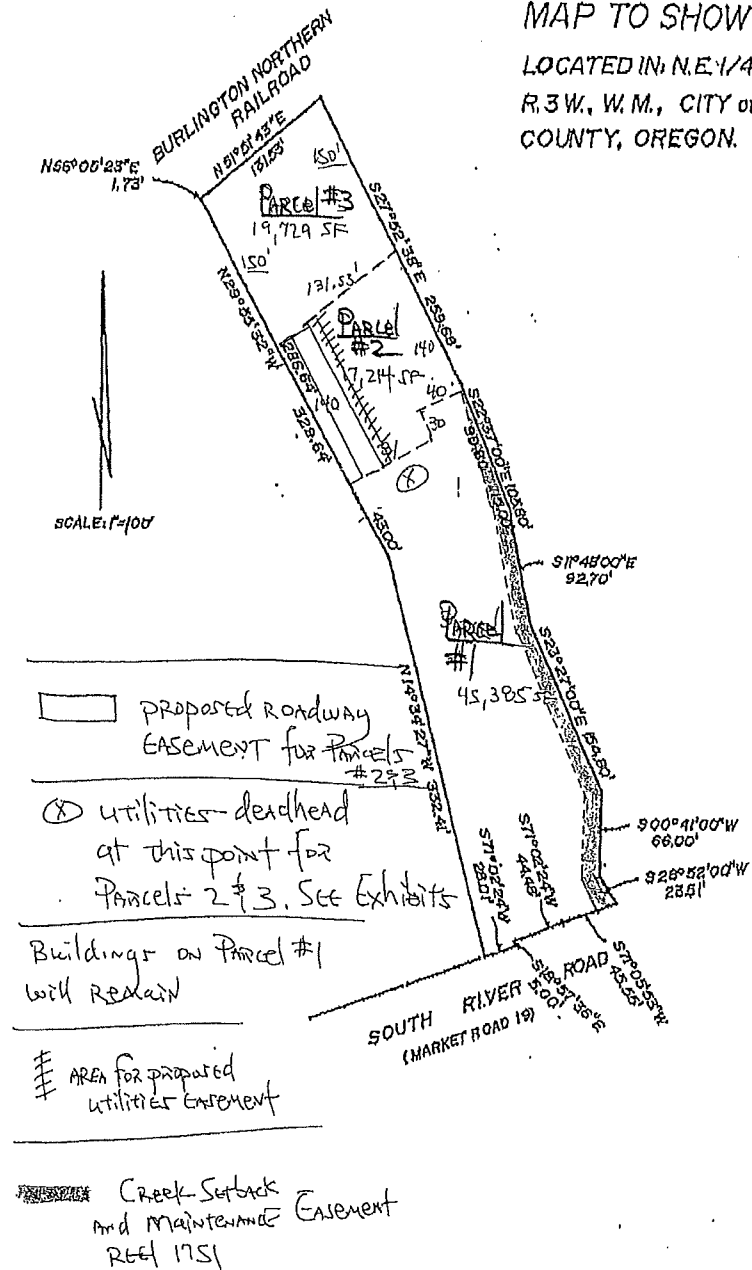 MAP TO SHOW
LOCATED IN: N.E. 1/4
R.3 W., W.M., CITY OF
COUNTY, OREGON.
BURLINGTON NORTHERN
RAILROAD
N 51°51'43" E
131.53'
1.73'
150'
PARCEL #3
19,729 SF
150'
S 27°52'38" E 259.68'
131.53'
PARCEL
#2
140
17,214 SF
40'
30
286.64'
140
329.64'
43.00'
X
SCALE: 1"=100'
S 22°37'00" E 103.80'
15.00'
S 11°48'00" E
92.70'
PARCEL
#1
45,385 SF
S 23°27'00" E 154.80'
N 14°34'27" W 332.41'
S 00°41'00" W
66.00'
S 26°52'00" W
S 71°02'24" W
S 71°02'24" W
S 18°57'36" E
5.00'
S 71°05'53" W
SOUTH RIVER ROAD
(MARKET ROAD 19)
PROPOSED ROADWAY
EASEMENT for PARCELS
#2&3
X UTILITIES-deadhead
at this point for
PARCELS 2 & 3. SEE Exhibits
Buildings on PARCEL #1
will REMAIN
AREA for proposed
utilities EASEMENT
Creek Setback
And MAINTENANCE EASEMENT
REEL 1751